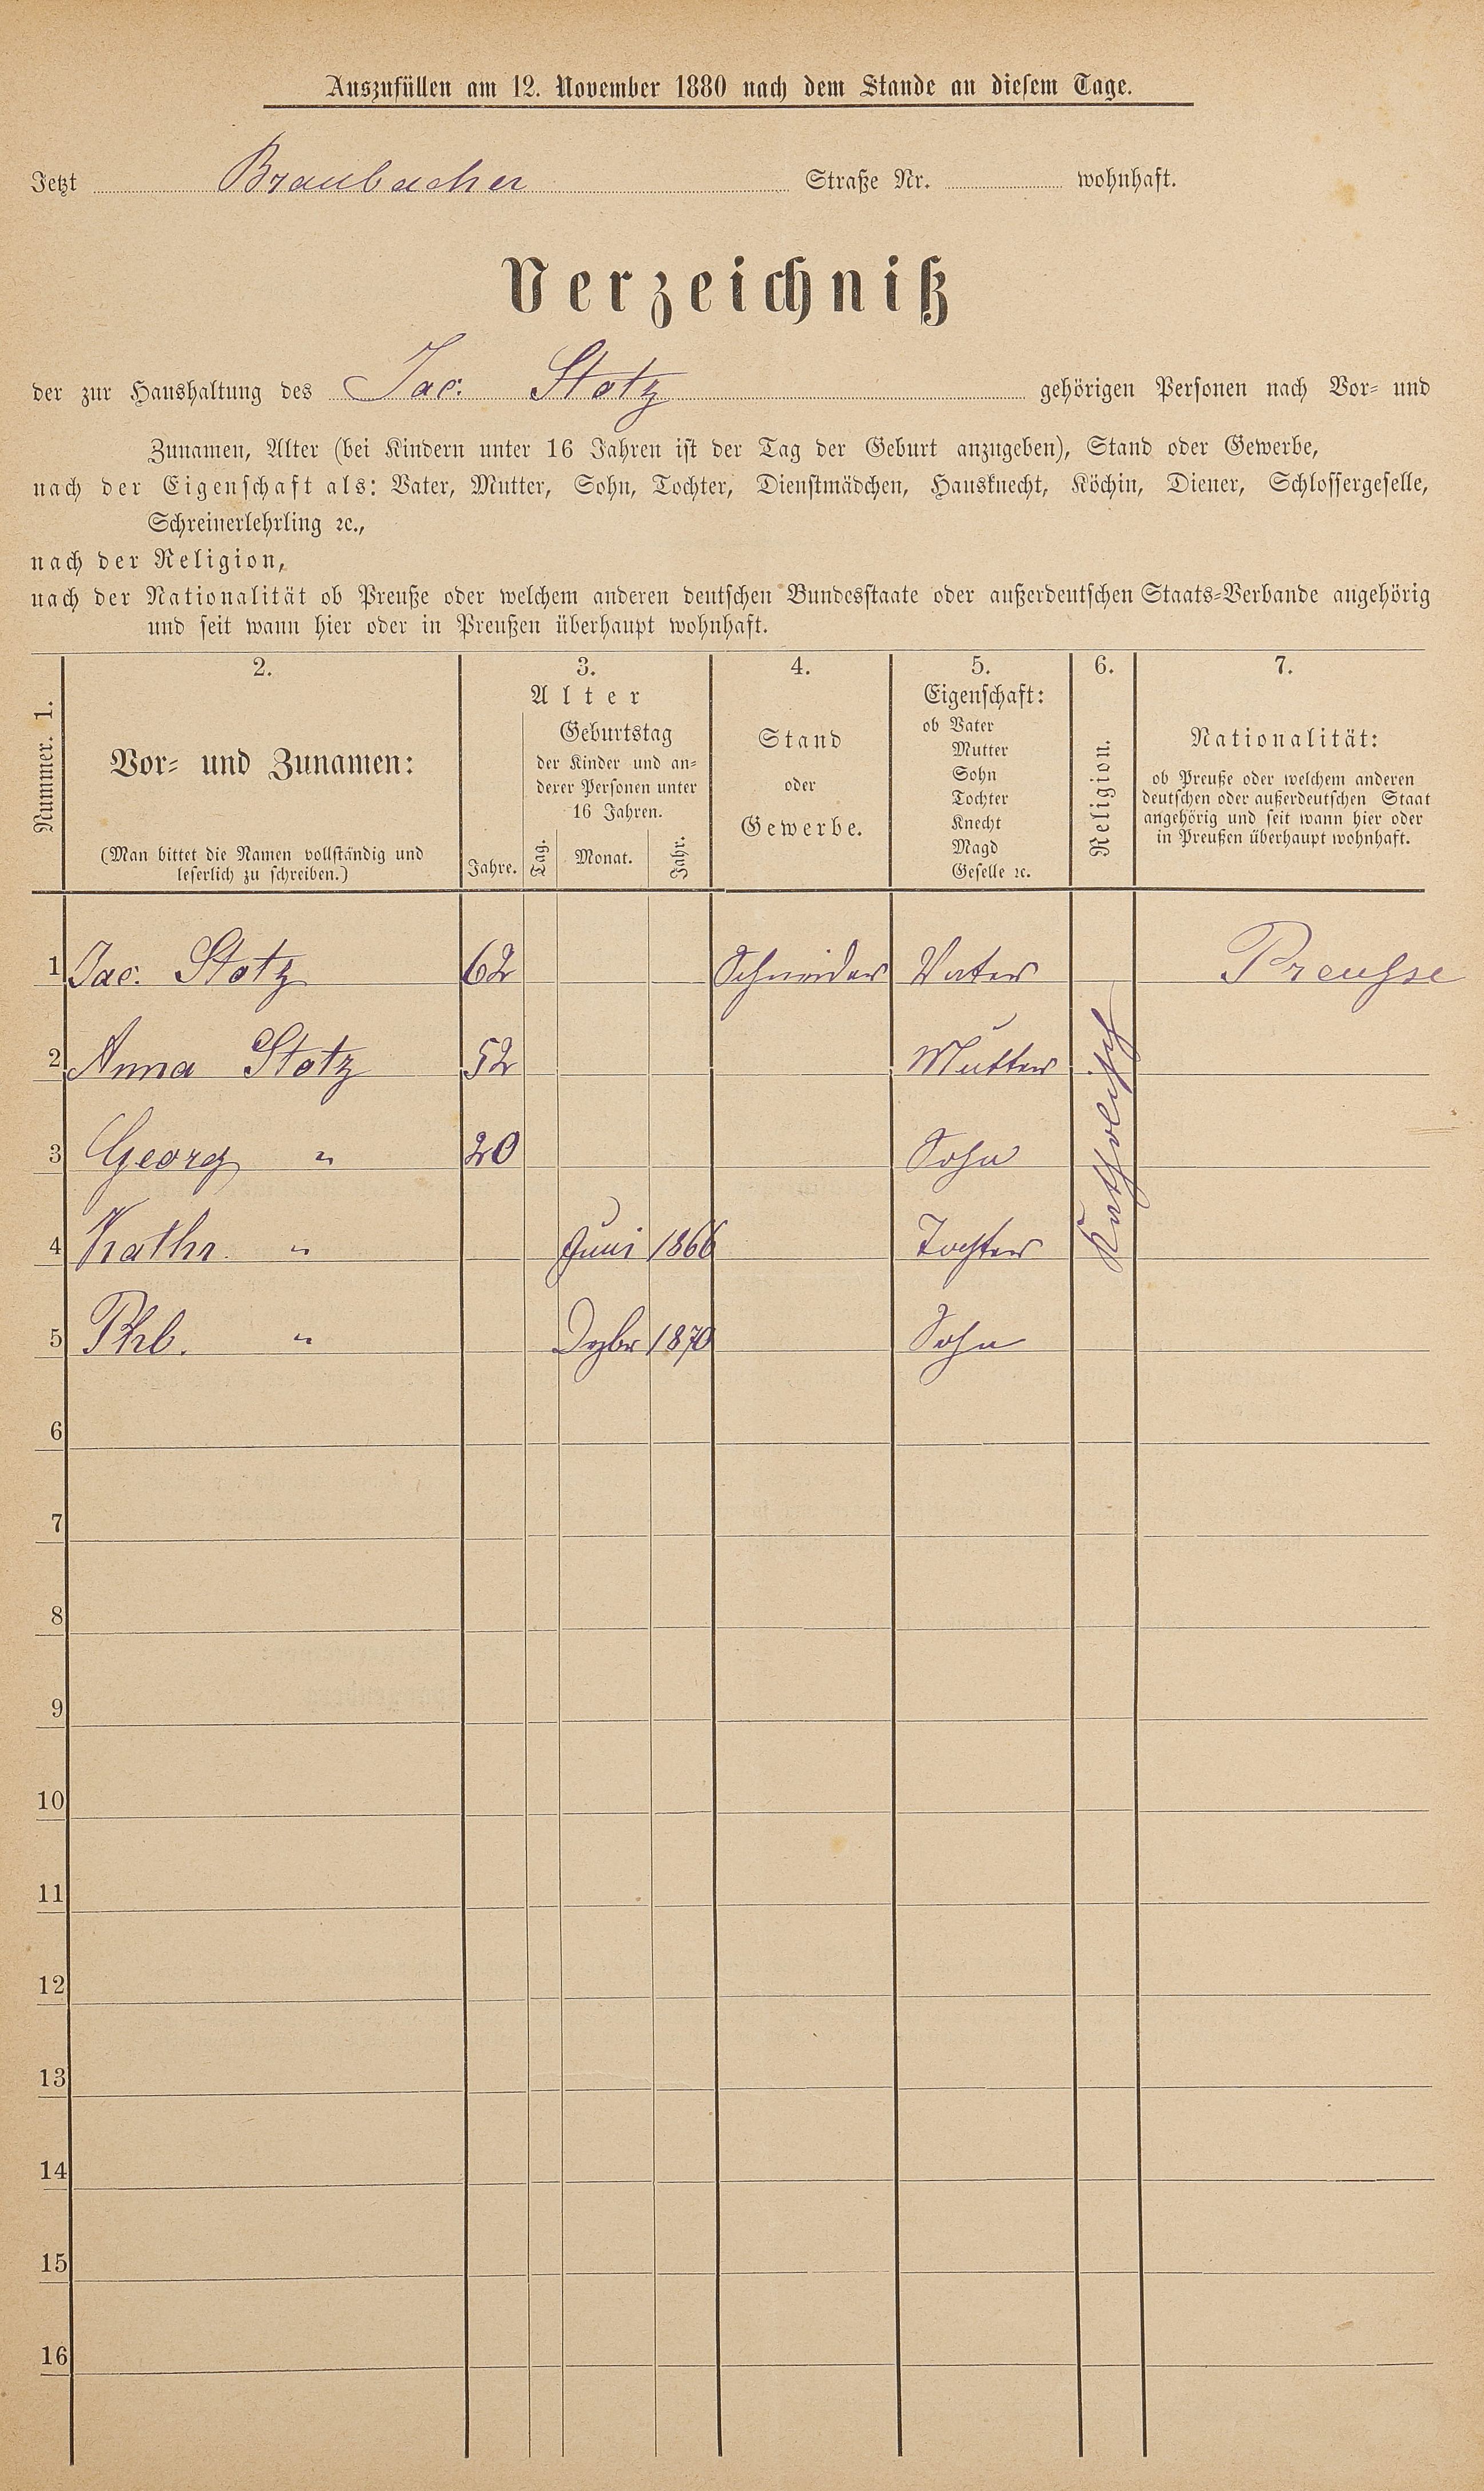 Auszufüllen am 12. November 1880 nach dem Stande an diesem Tage.
Jetzt Braubacher Straße Nr. wohnhaft.
Verzeichniß
der zur Haushaltung des Jac. Stotz gehörigen Personen nach Vor- und
Zunamen, Alter (bei Kindern unter 16 Jahren ist der Tag der Geburt anzugeben), Stand oder Gewerbe,
nach der Eigenschaft als: Vater, Mutter, Sohn, Tochter, Dienstmädchen, Hausknecht, Köchin, Diener, Schlossergeselle,
Schreinerlehrling ꝛc.,
nach der Religion,
nach der Nationalität ob Preuße oder welchem anderen deutschen Bundesstaate oder außerdeutschen Staats-Verbande angehörig
und seit wann hier oder in Preußen überhaupt wohnhaft.
Nummer. 1.
2.
Vor- und Zunamen:
(Man bittet die Namen vollständig und
leserlich zu schreiben.)
3.
Alter
Jahre.
Geburtstag
der Kinder und an-
derer Personen unter
16 Jahren.
Tag. Monat. Jahr.
4.
Stand
oder
Gewerbe.
5.
Eigenschaft:
ob Vater
Mutter
Sohn
Tochter
Knecht
Magd
Geselle ꝛc.
6.
Religion.
7.
Nationalität:
ob Preuße oder welchem anderen
deutschen oder außerdeutschen Staat
angehörig und seit wann hier oder
in Preußen überhaupt wohnhaft.
1 Jac. Stotz 62 Schneider Vater Preußse
2 Anna Stotz 52 Mutter
Katholisch
3 Georg " 20 Sohn
4 Kathr. " Juni 1866 Tochter
5 Phb. " Dzbr 1870 Sohn
6
7
8
9
10
11
12
13
14
15
16